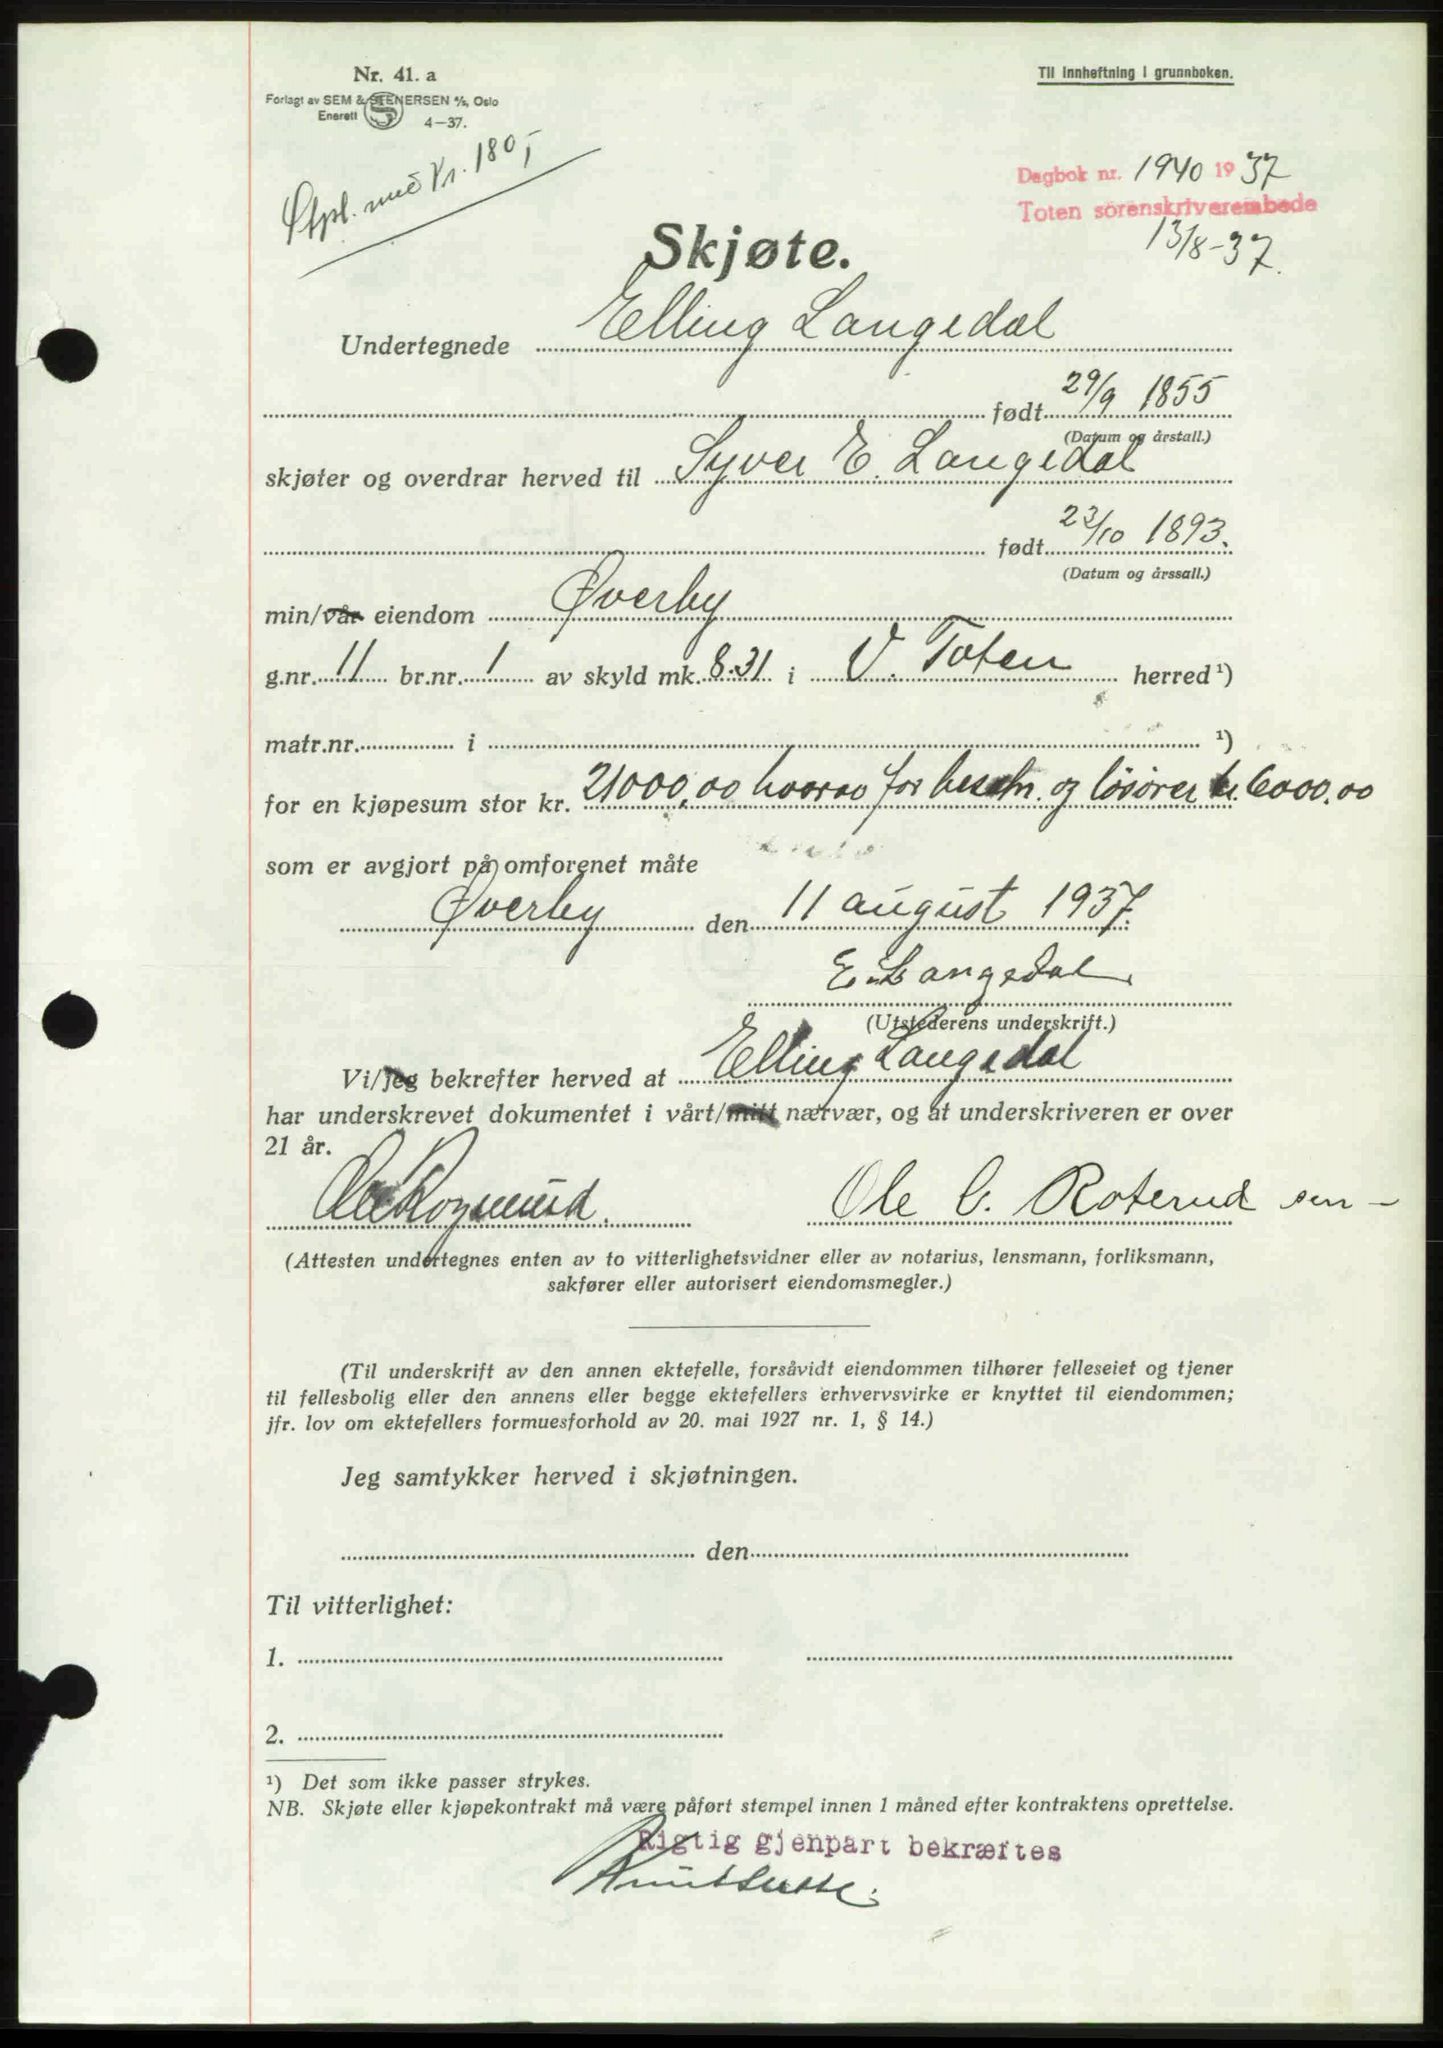 Nr. 41. a
Til innheftning i grunnboken.
Forlagt av SEM & STENERSEN A/S, Oslo
Enerett
4—37.
Stpl. med Kr. 180,-
Dagbok nr. 1940 1937
Toten sorenskriverembede
13/8-37.
Skjøte.
Undertegnede Elling Langedal
født 29/9 1855
(Datum og årstall.)
skjøter og overdrar herved til Syver E. Langedal
født 23/10 1893.
(Datum og årssall.)
min/vår eiendom Øverby
g.nr. 11 br.nr. 1 av skyld mk. 8.31 i V. Toten herred ¹)
matr.nr. i ¹)
for en kjøpesum stor kr. 21000,00 hvorav for besetn. og løsøre kr. 6000,00
som er avgjort på omforenet måte
Øverby den 11 august 1937.
E. Langedal
(Utstederens underskrift.)
Vi/jeg bekrefter herved at Elling Langedal
har underskrevet dokumentet i vårt/mitt nærvær, og at underskriveren er over
21 år.
Ole C. Roterud sen
(Attesten undertegnes enten av to vitterlighetsvidner eller av notarius, lensmann, forliksmann,
sakfører eller autorisert eiendomsmegler.)
(Til underskrift av den annen ektefelle, forsåvidt eiendommen tilhører felleseiet og tjener
til fellesbolig eller den annens eller begge ektefellers erhvervsvirke er knyttet til eiendommen;
jfr. lov om ektefellers formuesforhold av 20. mai 1927 nr. 1, § 14.)
Jeg samtykker herved i skjøtningen.
den
Til vitterlighet:
1.
2.
¹) Det som ikke passer strykes.
NB. Skjøte eller kjøpekontrakt må være påført stempel innen 1 måned efter kontraktens oprettelse.
Rigtig gjenpart bekræftes